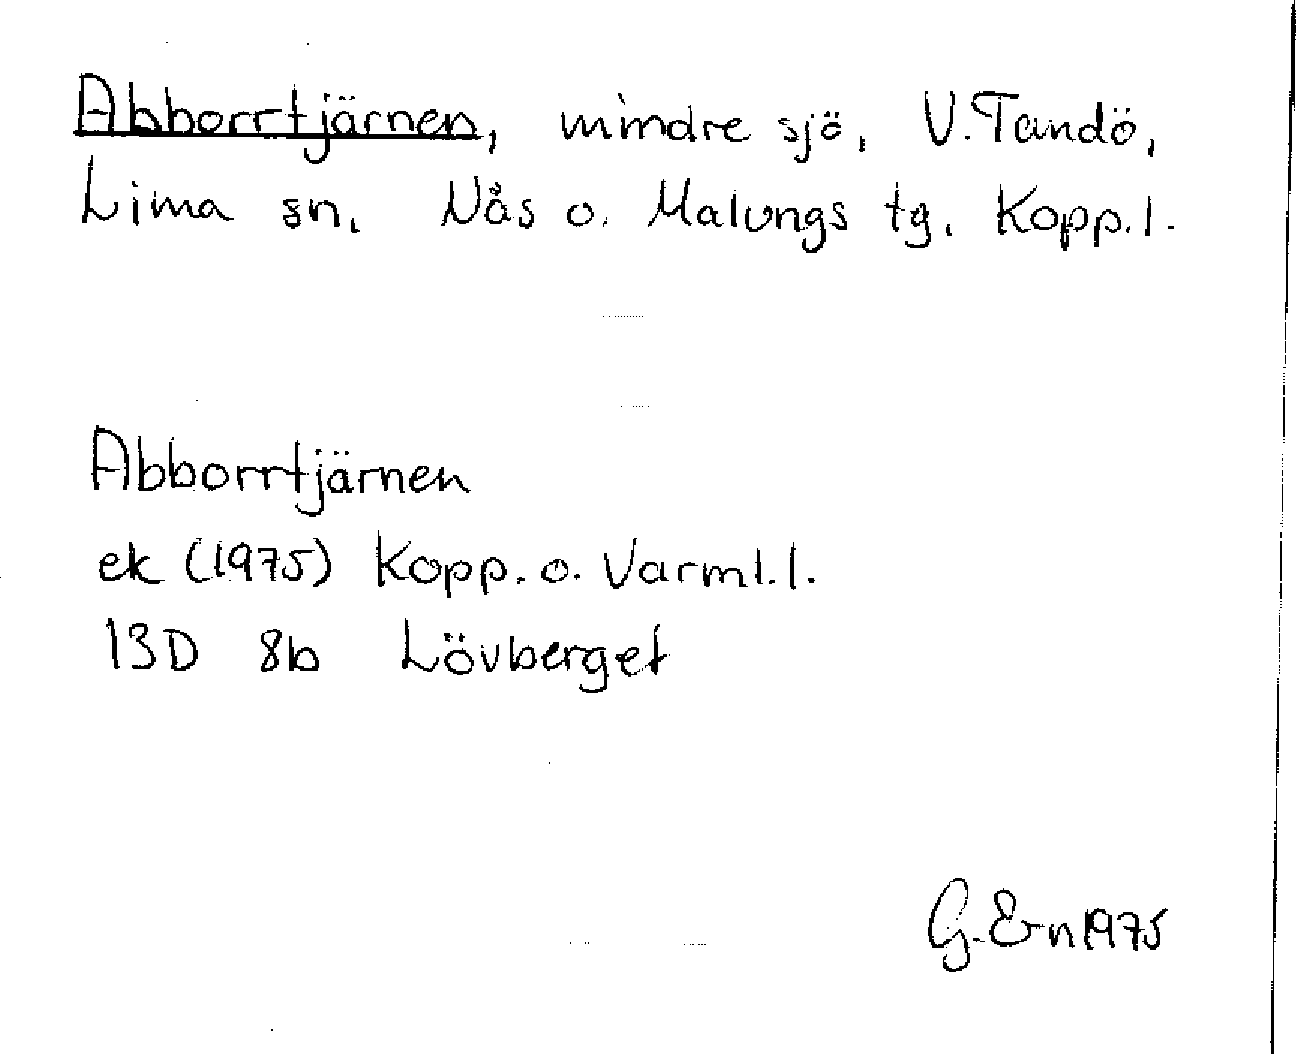 Abborrtjärnen, mindre sjö, V. Tandö,
Lima sn. Nås o. Malungs tg. Kopp. l.
Abborrtjärnen
ek (1975) Kopp. o. Varml. l.
13D 8b Lövberget
G. En 1975